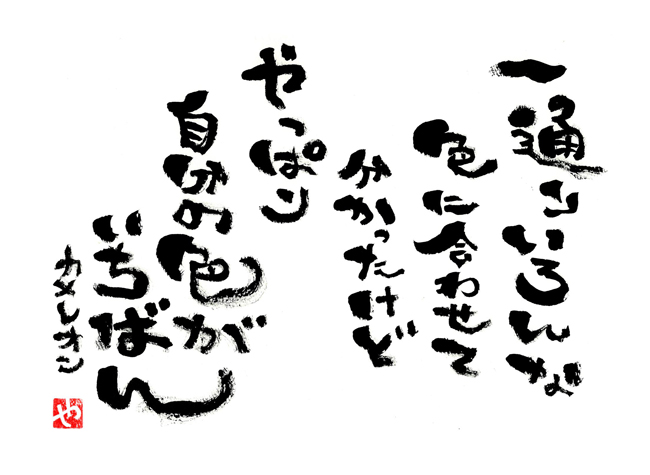 一通りいろんな
色に合わせて
分かったけど
やっぱり
自分の色が
いちばん
カメレオン
や